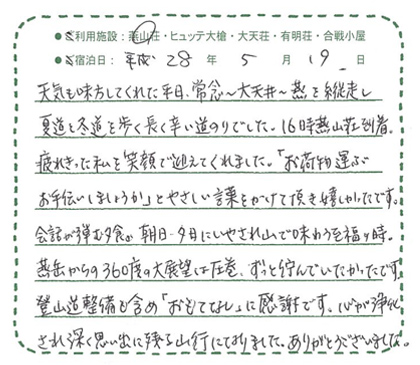 ●ご利用施設：燕山荘・ヒュッテ大槍・大天荘・有明荘・合戦小屋
●ご宿泊日：平成 28 年 5 月 19 日
天気も味方してくれた平日、常念〜大天井〜燕を縦走し
夏道と冬道を歩く長く辛い道のりでした。16時燕山荘到着。
疲れきった私を笑顔で迎えてくれました。「お荷物運ぶ
お手伝いしましょうか」とやさしい言葉をかけて頂き嬉しかったです。
会話が弾む夕食、朝日・夕日にいやされ山で味わう至福の時。
燕岳からの360度の大展望は圧巻、ずっと佇んでいたかったです。
登山道整備も含め「おもてなし」に感謝です。心が浄化
され深く思い出に残る山行になりました。ありがとうございました。